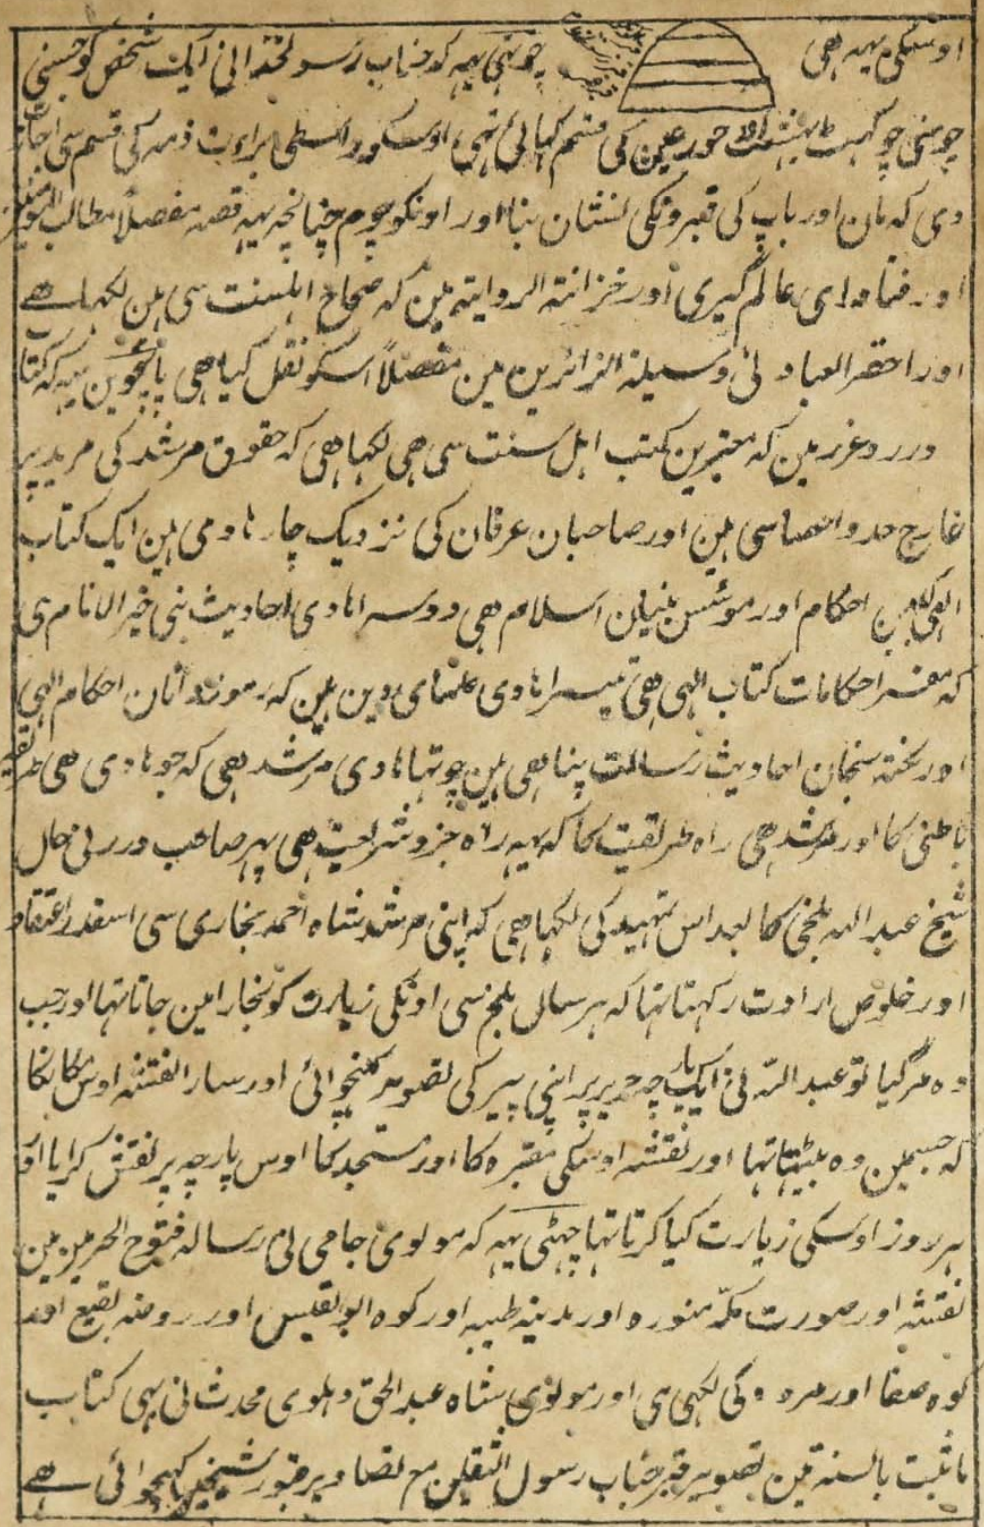 اوسکی یہہ ھی چوتہی یہہ کہ جناب رسولخدا نی ایک شخص کو جسنی
چومنی چوکہٹ بہشت اور حور عین کی قسم کہائی تہی اوسکو واسطی براءت ذمہ کی قسم سی اجازت
دی کہ مان اور باپ کی قبرونکی نشان بنا اور اونکو چوم چنانچہ یہہ قصہ مفصلاً مطالب المومنین
اور فتاوای عالمگیری اور خزانتہ الروایتہ مین کہ صحاح اہلسنت سی ہین لکہا ہے
اور احقر العباد نی وسیلة الزائرین مین مفصلاً اسکو نقل کیا ھی پانچوین یہہ کہ کتاب
درر و غرر مین کہ معتبرین کتب اہل سنت سی ھی لکہا ھی کہ حقوق مرشد کی مرید پر
خارج حد و احصا سی ہین اور صاحبان عرفان کی نزدیک چار ہادی ہین ایک کتاب
الہی احکام اور موسس بنیان اسلام ھی دوسرا ہادی احادیث نبی خیر الانام ہی
کہ مفسر احکامات کتاب الہی ھی تیسرا ہادی علمای دین ہین کہ رموز دانان احکام الہی
اور نکتہ سنجان احادیث رسالت پناہی ہین چوتہا ہادی مرشد ھی کہ جو ہادی ھی طریقہ
باطنی کا اور مرشد ھی راہ طریقت کا کہ یہہ راہ جزو شریعت ھی پہر صاحب درر نی حال
شیخ عبد اللہ بلخی کا بعد اس تمہید کی لکہا ھی کہ اپنی مرشد شاہ احمد بخاری سی اسقدر اعتقاد
اور خلوص ارادت رکہتا تہا کہ ہر سال بلخ سی اونکی زیارت کو بخارا مین جاتا تہا اور جب
وہ مرگیا تو عبد اللہ نی ایک پارچہ حریر پر اپنی پیر کی تصویر کہنچوائی اور سارا نقشہ اوس مکانکا
کہ جسمین وہ بیٹہتا تہا اور نقشہ اوسکی مقبرہ کا اور مسجد کا اوس پارچہ پر نقش کرایا اور
ہر روز اوسکی زیارت کیا کرتا تہا چہٹی یہہ کہ مولوی جامی نی رسالہ فتوح الحرمین مین
نقشہ اور صورت مکہ منورہ اور مدینہ طیبہ اور کوہ ابو قبیس اور روضہ بقیع اور
کوہ صفا اور مروہ کی لکہی ہی اور مولوی شاہ عبد الحق دہلوی محدث نی بہی کتاب
ماثبت بالسنہ مین تصویر قبر جناب رسول الثقلین مع تصاویر قبور شیخین کہچوائی ہے